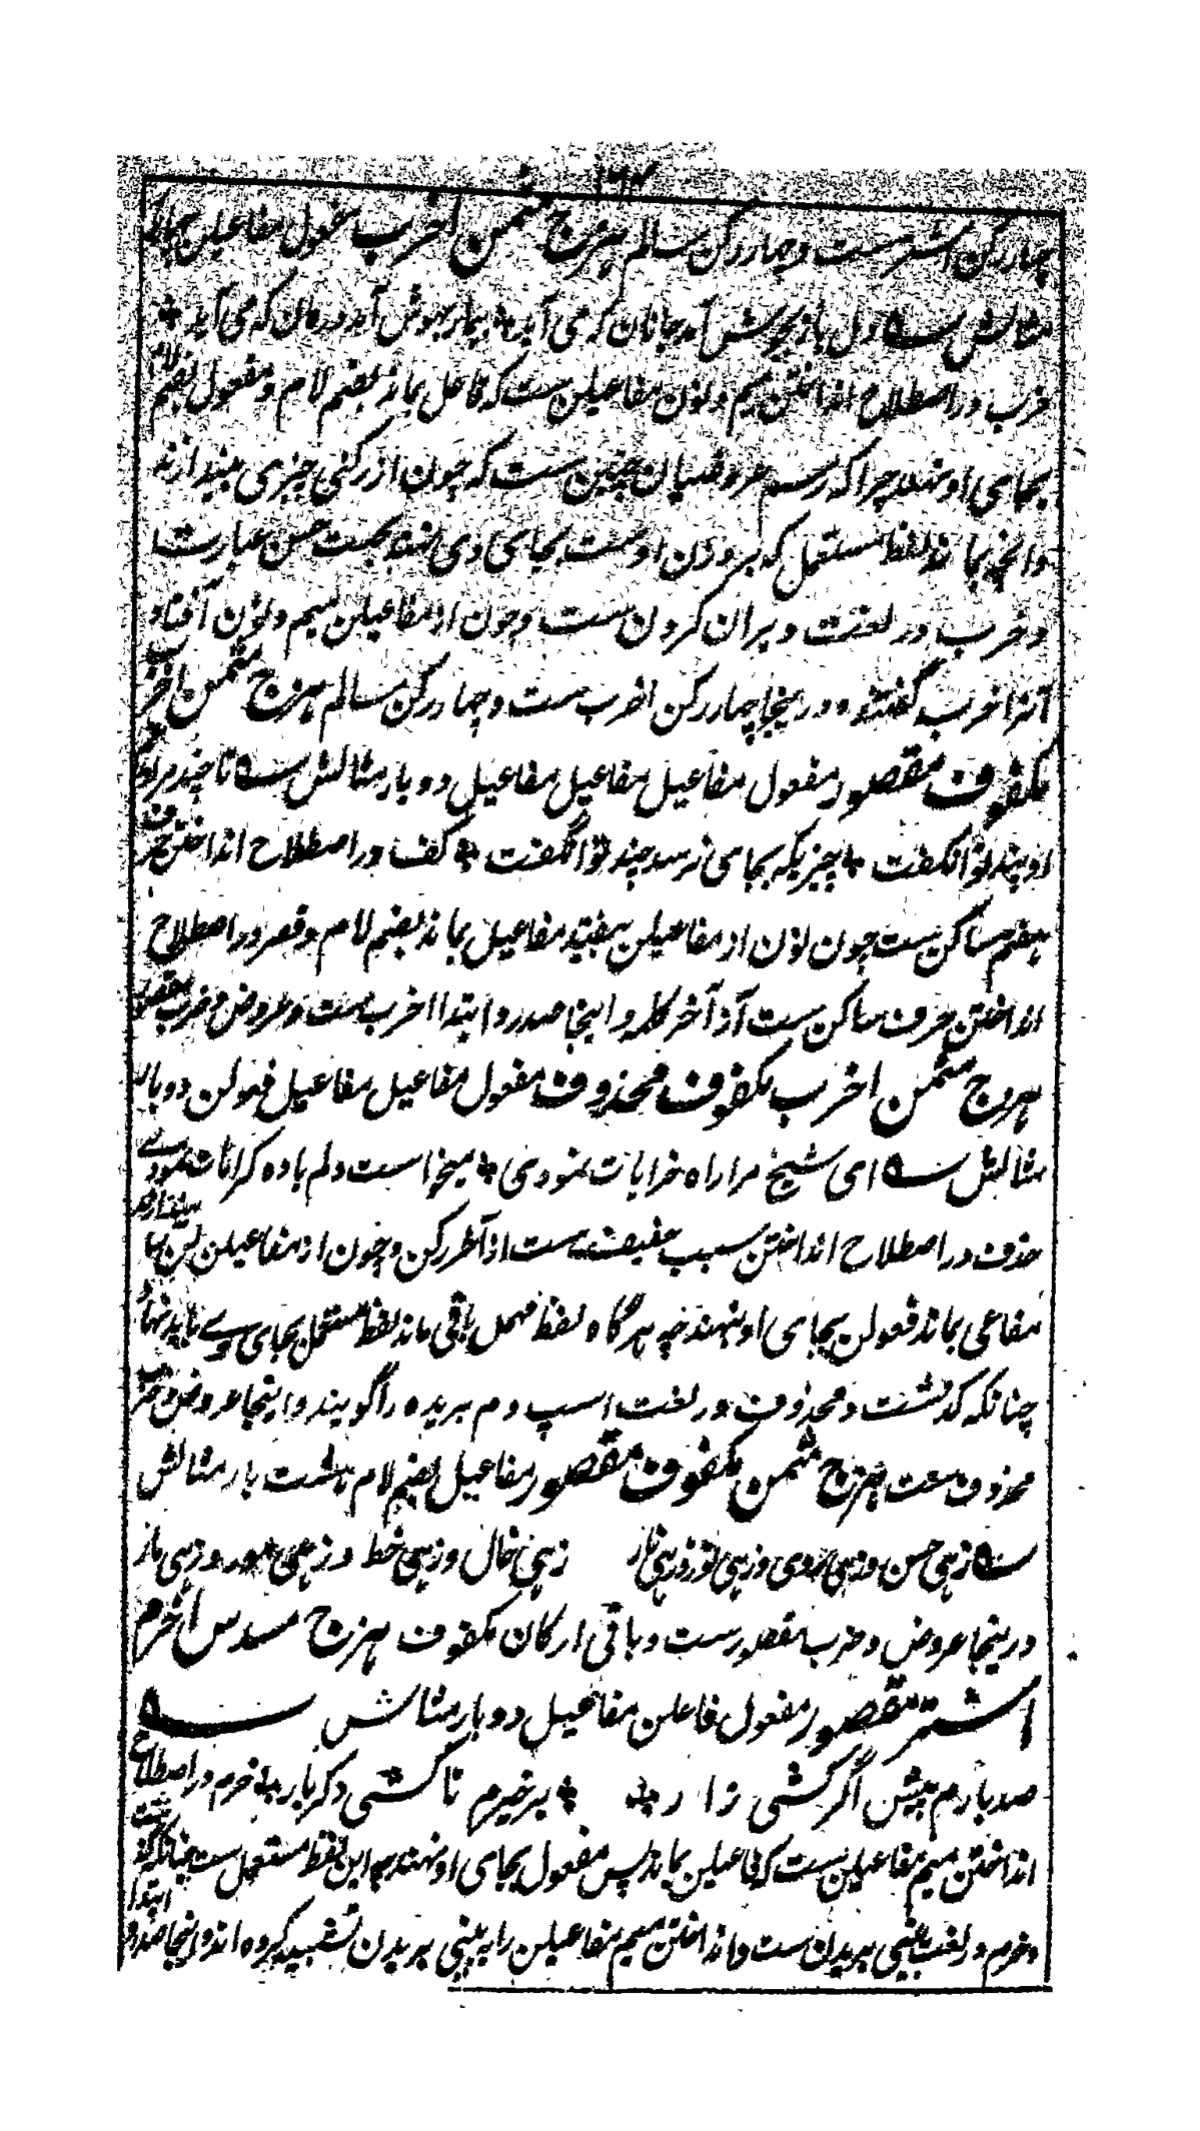 چهار رکن اشترست و چهار رکن سالم هزج مثمن اخرب مفعول مفاعیلن چهار
مثالش ؎ دل باز بجوش آمد جانان که می آید * بیمار بهوش آمد درمان که می آید *
خرب در اصطلاح انداختن میم و نون مفاعیلن ست که فاعیل بماند بضم لام و مفعول بضم لام
بجای او نهند چرا که رسم عروضیان چنین ست که چون از رکنی چیزی بیندازند
و آنچه بماند لفظ مستعمل که بر وزن اوست بجای وی نهند بجهت حسن عبارت
و خرب در لغت ویران کردن ست و چون از مفاعیلن میم و نون افتاد
آنرا اخرب گفتند و درینجا چهار رکن اخرب ست و چهار رکن سالم هزج مثمن اخرب
مکفوف مقصور مفعول مفاعیل مفاعیل مفاعیل دو بار مثالش ؎ تا چند مرا
او پند توانگفت * چیزیکه بجای نرسد چند توانگفت * کف در اصطلاح انداختن حرف
هفتم ساکن ست چون نون از مفاعیلن بیفتد مفاعیل بماند بضم لام و قصر در اصطلاح
انداختن حرف ساکن ست از آخر کلمه و اینجا صدر و ابتدا اخرب ست و عروض و ضرب مقصور
هزج مثمن اخرب مکفوف محذوف مفعول مفاعیل مفاعیل فعولن دو بار
مثالش ؎ ای شیخ مرا راه خرابات نمودی * میخواست دلم باده کرامات نمودے
حذف در اصطلاح انداختن سبب خفیف ست از آخر رکن و چون از مفاعیلن لن بیندازند
مفاعی بماند فعولن بجای او نهند چه هرگاه لفظ مهمل باقی ماند لفظ مستعمل بجای وے باید نهاد
چنانکه گذشت و محذوف در لغت اسپ دم بریده را گویند و اینجا عروض و ضرب
محذوف ست هزج مثمن مکفوف مقصور مفاعیل بضم لام هشت بار مثالش
؎ زهی حسن و زهی روی و زهی نور و زهی نار زهی خال و زهی خط و زهی مور و زهی مار
درینجا عروض و ضرب مقصورست و باقی ارکان مکفوف هزج مسدس اخرم
اشتر مقصور مفعولن فاعلن مفاعیل دو بار مثالش ؎
صد بارم پیش اگر کشی زار * برخیزم تا کشی دگر بار * خرم در اصطلاح
انداختن میم مفاعیلن ست که فاعیلن بماند پس مفعولن بجای او نهند چه این لفظ مستعمل ست چنانکه گذشت
و خرم در لغت بینی بریدن ست و انداختن میم مفاعیلن را به بینی بریدن تشبیه کرده اند و اینجا صدر و ابتدا